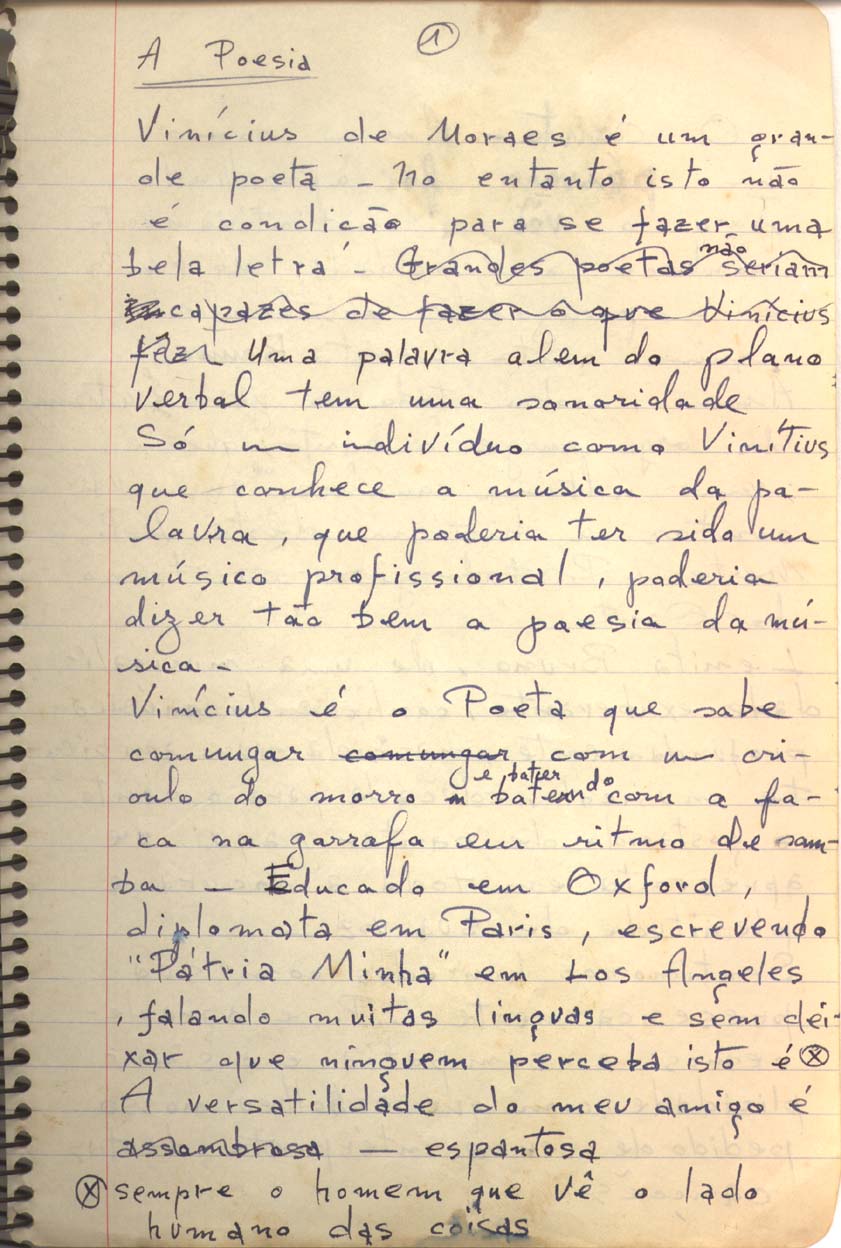 A Poesia
1
Vinícius de Moraes é um gran-
de poeta - No entanto isto não
é condição para se fazer uma
bela letra - Grandes poetas não seriam
capazes de fazer o que Vinícius
fêz Uma palavra alem do plano
verbal tem uma sonoridade
Só um indivíduo como Vinítius
que conhece a música da pa-
lavra, que poderia ter sido um
músico profissional, poderia
dizer tão bem a poesia da mú-
sica -
Vinícius é o Poeta que sabe
comungar comungar com um cri-
e bater do
oulo do morro batendo com a fa-
ca na garrafa em ritmo de sam-
ba - Educado em Oxford,
diplomata em Paris, escrevendo
"Pátria Minha" em Los Angeles
, falando muitas linguas e sem dei-
xar que ninguem perceba isto é ⓧ
A versatilidade do meu amigo é
assombrosa — espantosa
ⓧ sempre o homem que vê o lado
humano das coisas